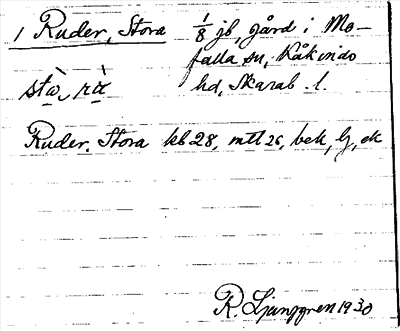 1 Ruder, Stora 1/8 jb, gård i Mo-
falla sn, Kåkinds
hd, Skarab. l.
Ruder, Stora kb 28, mtl 26, bek, lj, ek
R. Ljunggren 1930